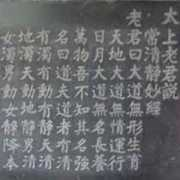 太上老君說
常清靜妙經
老君曰大道無形生育
天地大道無情運行
日月大道無名長養
萬物吾不知其名強
名曰道夫道者有清
有濁有動有靜天清
地濁天動地靜男清
女濁男動女靜降本